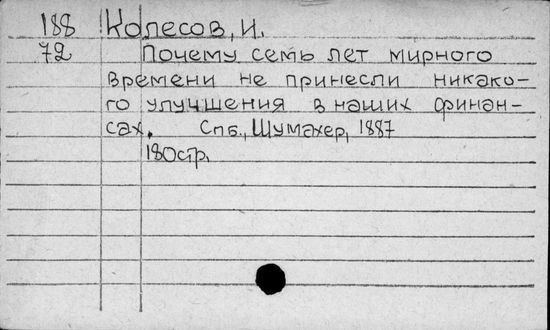 188 Колесов, И.
72 Почему семь лет мирного
времени не принесли никако-
го улучшения в наших финан-
сах. Спб., Шумахер, 1887
180стр.